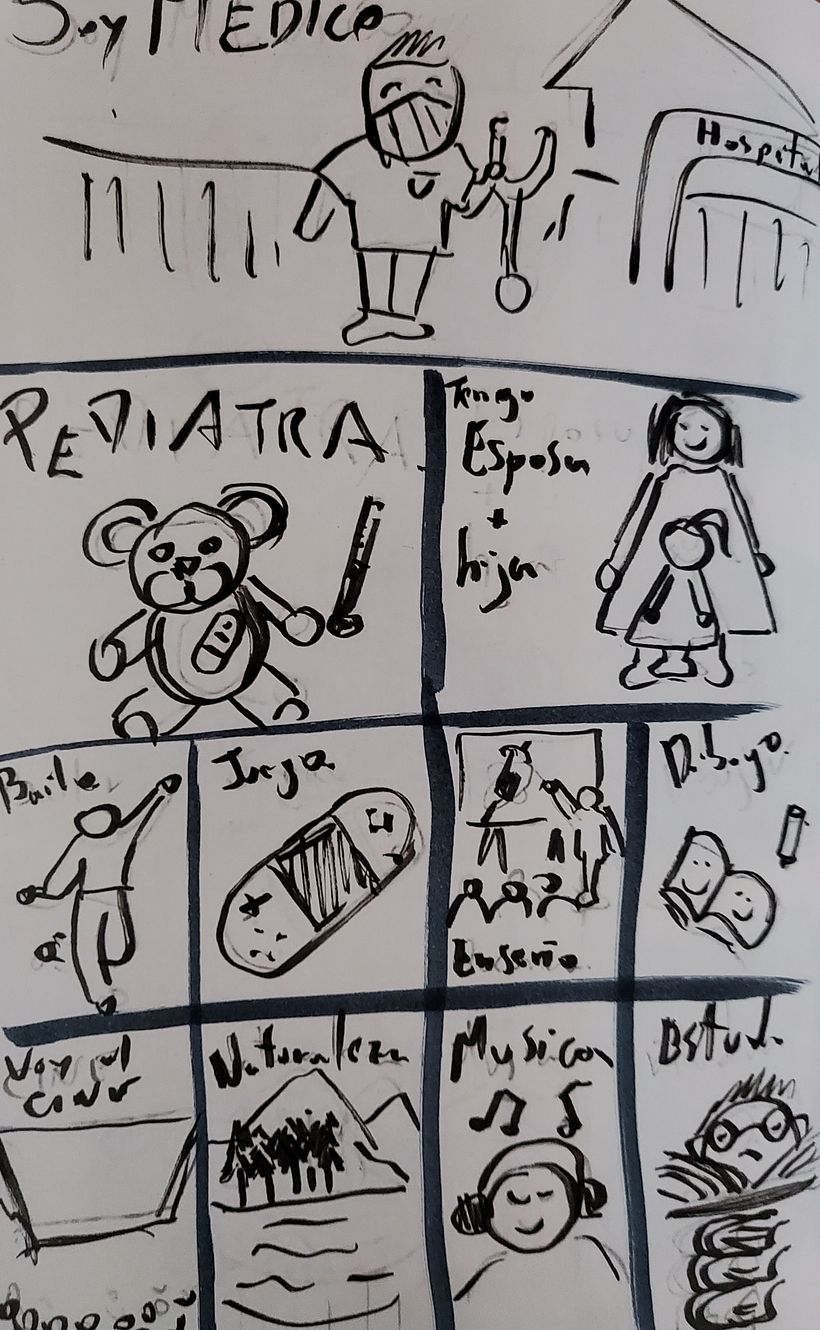 Soy MÉDICO
Hospital
PEDIATRA
Tengo
Esposa
+
hija
Baile
Juego
Enseño
Dibujo
Voy al
cine
Naturaleza
Musica
Estud.